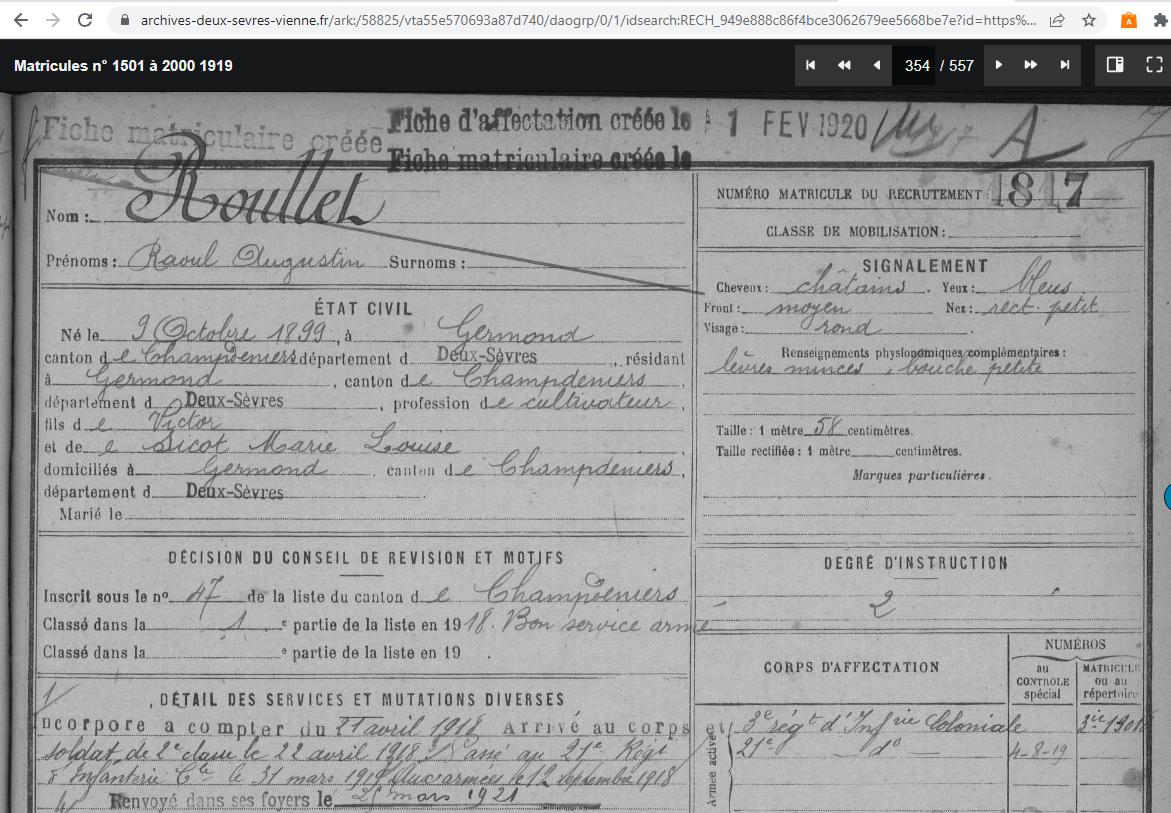 archives-deux-sevres-vienne.fr/ark:/58825/vta55e570693a87d740/daogrp/0/1/idsearch:RECH_949e888c86f4bce3062679ee5668be7e?id=https%...
Matricules n° 1501 à 2000 1919
354 / 557
Fiche matriculaire créée
Fiche d'affectation créée le 1 FEV 1920 A
Fiche matriculaire créée le
Nom : Roullet
Prénoms : Raoul Augustin Surnoms :
ÉTAT CIVIL
Né le 9 Octobre 1899, à Germond
canton de Champdeniers département d Deux-Sèvres, résidant
à Germond, canton de Champdeniers,
département d Deux-Sèvres, profession de cultivateur,
fils de Victor
et de Sicot Marie Louise
domiciliés à Germond, canton de Champdeniers,
département d Deux-Sèvres.
Marié le
DÉCISION DU CONSEIL DE REVISION ET MOTIFS
Inscrit sous le n° 47 de la liste du canton de Champdeniers
Classé dans la 1 e partie de la liste en 1918. Bon service armé
Classé dans la e partie de la liste en 19 .
DÉTAIL DES SERVICES ET MUTATIONS DIVERSES
Incorporé à compter du 21 avril 1918 Arrivé au corps et
soldat de 2e classe le 22 avril 1918 Passé au 21e Régt
d'Infanterie Cle le 31 mars 1919 Aux armées le 12 septembre 1918
Renvoyé dans ses foyers le 25 mars 1921
NUMÉRO MATRICULE DU RECRUTEMENT : 1817
CLASSE DE MOBILISATION :
SIGNALEMENT
Cheveux : châtains. Yeux : bleus
Front : moyen Nez : rect petit
Visage : rond.
Renseignements physionomiques complémentaires :
lèvres minces, bouche petite
Taille : 1 mètre 58 centimètres.
Taille rectifiée : 1 mètre centimètres.
Marques particulières.
DEGRÉ D'INSTRUCTION
2
CORPS D'AFFECTATION
NUMÉROS
au CONTROLE spécial
MATRICULE ou au répertoire
Armée active
3e régt d'Infrie Coloniale
21e do 4-8-19